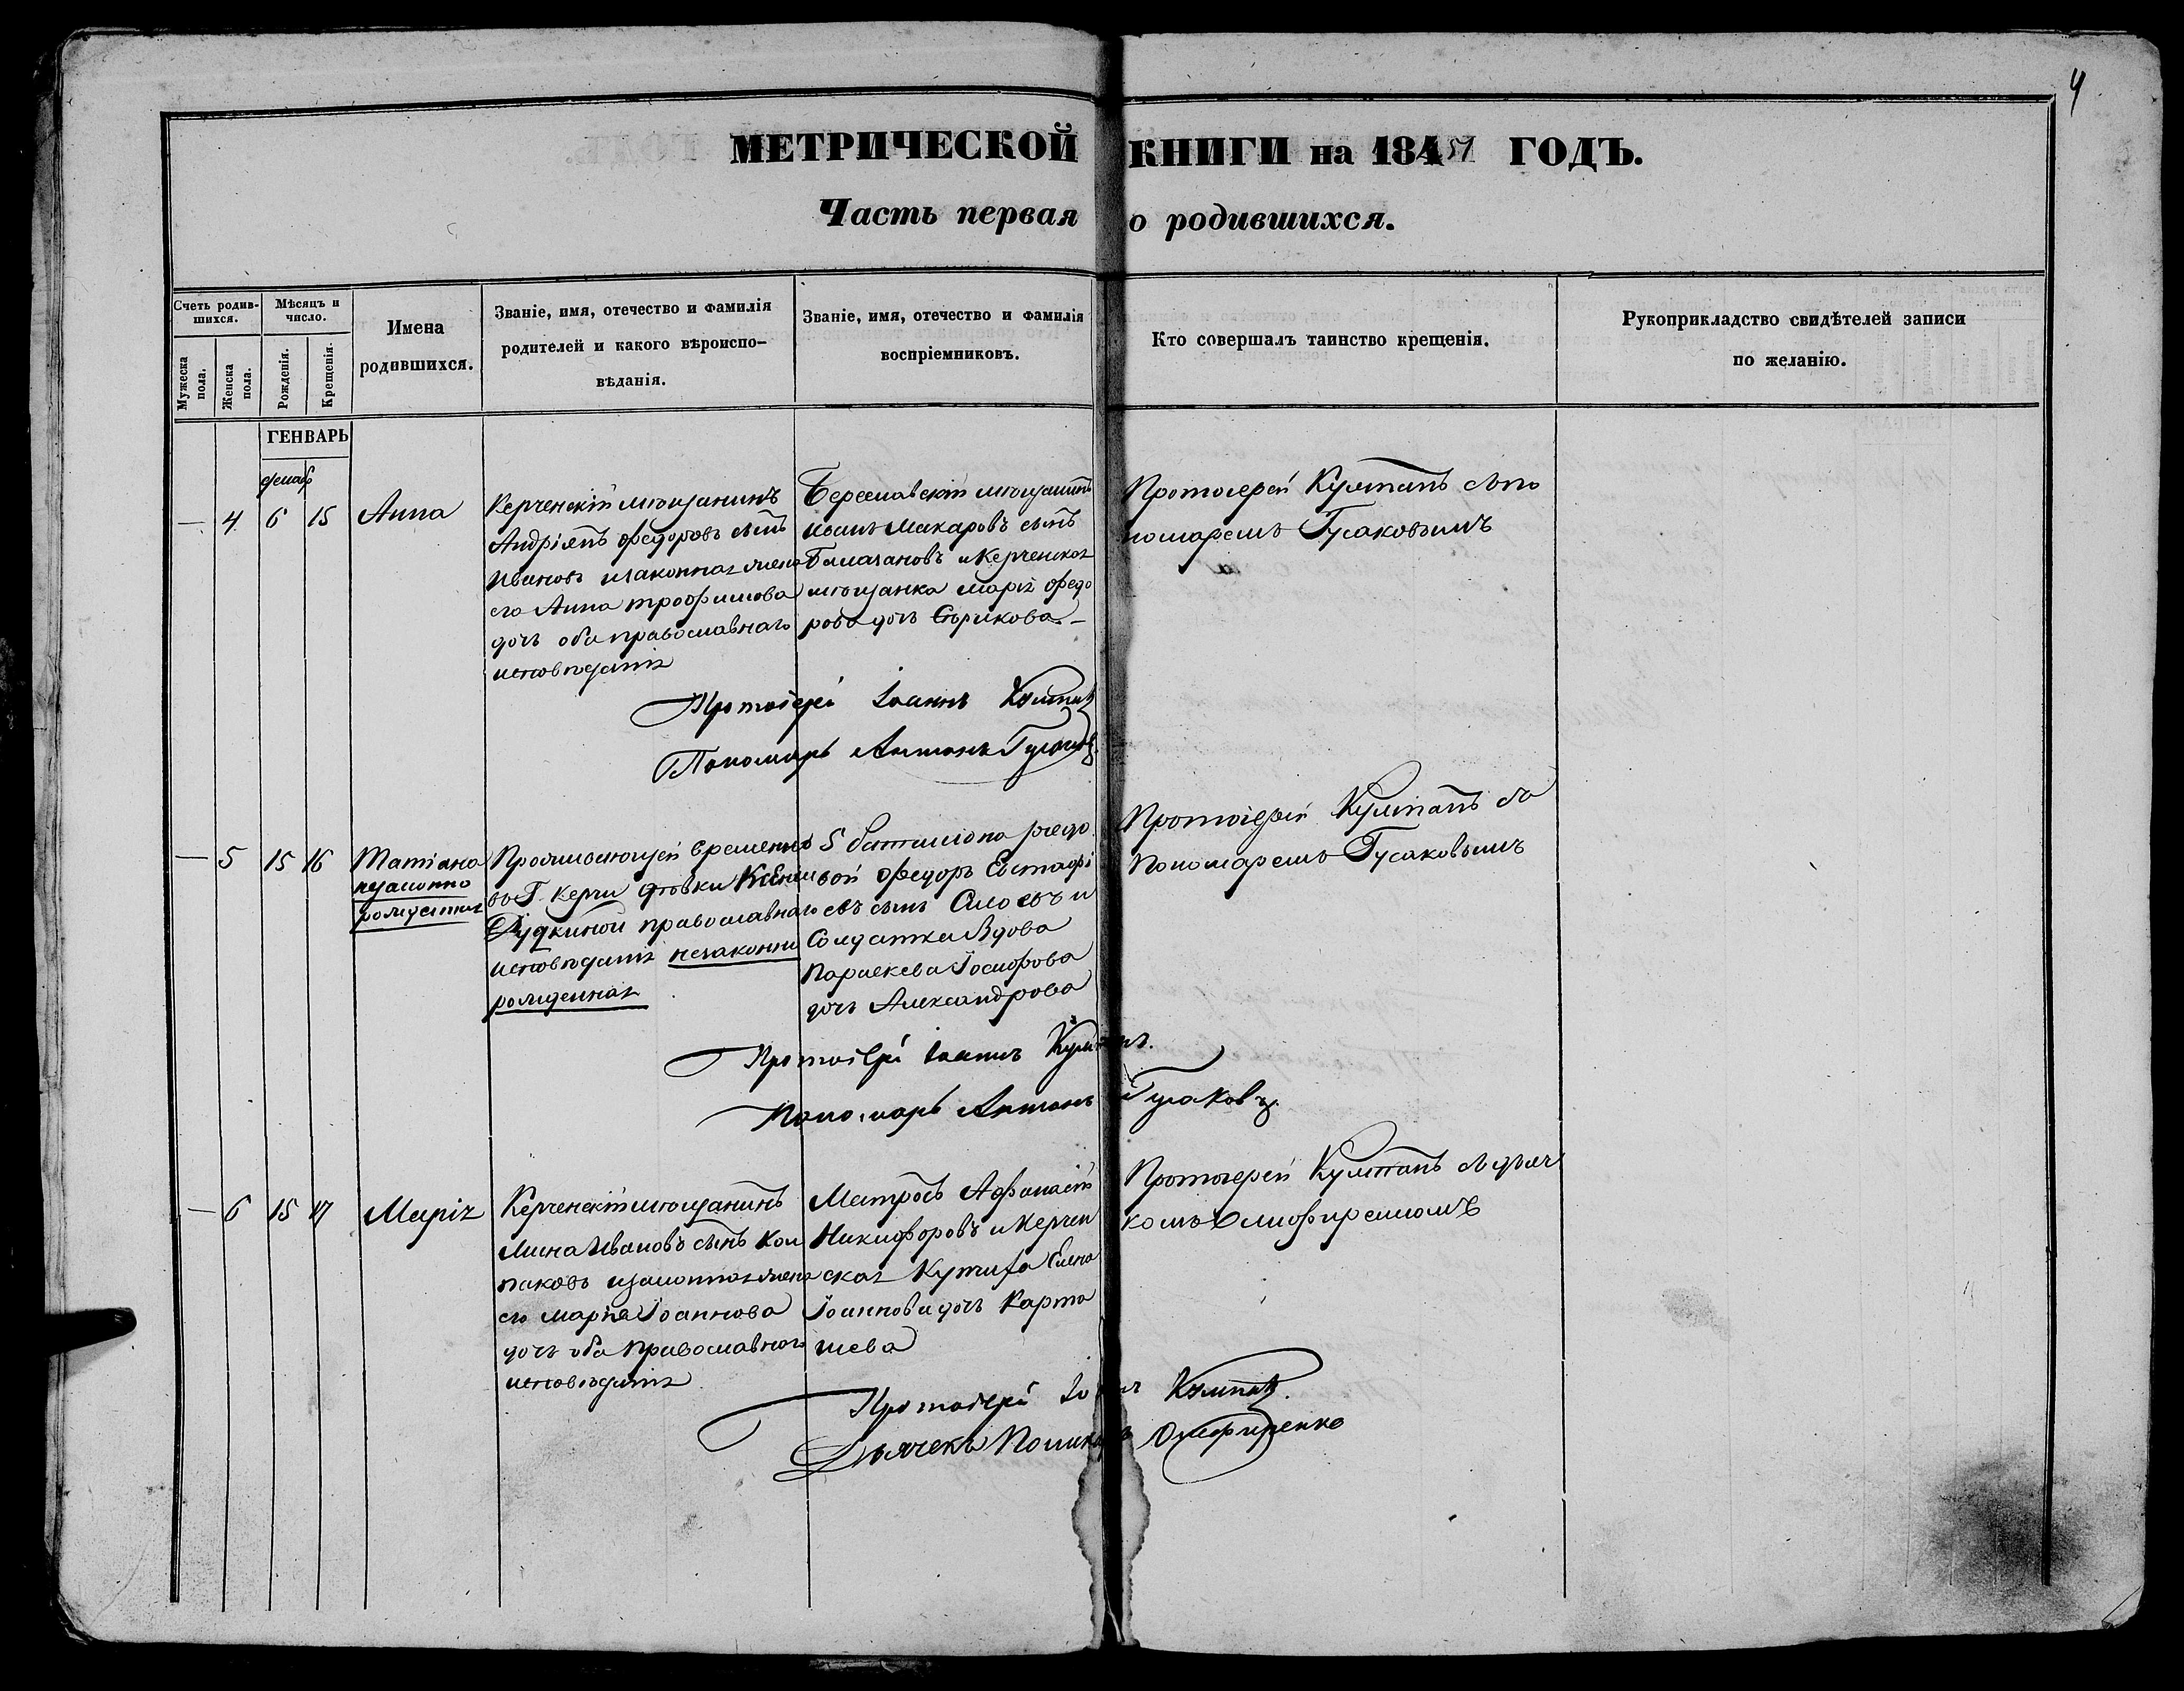 4
МЕТРИЧЕСКОЙ КНИГИ на 1851 ГОДЪ.
Часть первая о родившихся.
Счетъ родив-
шихся.
Мужеска пола.
Женска пола.
Мѣсяцъ и
число.
Рожденія.
Крещенія.
Имена
родившихся.
Званіе, имя, отечество и фамилія
родителей и какого вѣроиспо-
вѣданія.
Званіе, имя, отечество и фамилія
воспріемниковъ.
Кто совершалъ таинство крещенія.
Рукоприкладство свидѣтелей записи
по желанію.
ГЕНВАРЬ
— 4 6 15 Анна
Керченскій мѣщанинъ
Андріянъ Федоровъ сынъ
Ивановъ и законная жена
его Анна трофимова
дочь оба православнаго
исповѣданія
Береславскій мѣщанинъ
Макаровъ сынъ
и Керченская
мѣщанка марія Федо
рова дочь
Протоіерей Кулшанъ съ по
номаремъ Гусаковымъ
Протоіерей Іоаннъ Кулшанъ
Пономарь Антонъ Гусаковъ
— 5 15 16 Татіана
незаконно
рожденная
временно
въ Г. Керчи дѣвки Ксеніи
Дудкиной православнаго
исповѣданія незаконно
рожденная
5 баталіона рядо
вой Федоръ Евстафі
евъ сынъ и
Солдатка Вдова
Параскева Іосифова
дочь Александрова
Протоіерей Кулшанъ съ
Пономаремъ Гусаковымъ
Протоіерей Іоаннъ Кулшанъ.
Пономарь Антонъ Гусаковъ.
— 6 15 17 Марія
Керченскій мѣщанинъ
Мина Ивановъ сынъ Кол
паковъ и законная жена
его марія Іоаннова
дочь оба православнаго
исповѣданія
Матросъ Афанасій
Никифоровъ и Керчен
ская Купчиха Елена
Іоаннова дочь Карта
шева
Протоіерей Кулшанъ съ дьяч
комъ Олифиренкомъ
Протоіерей Іоаннъ Кулшанъ.
Дьячекъ Поликарпъ Олифиренко